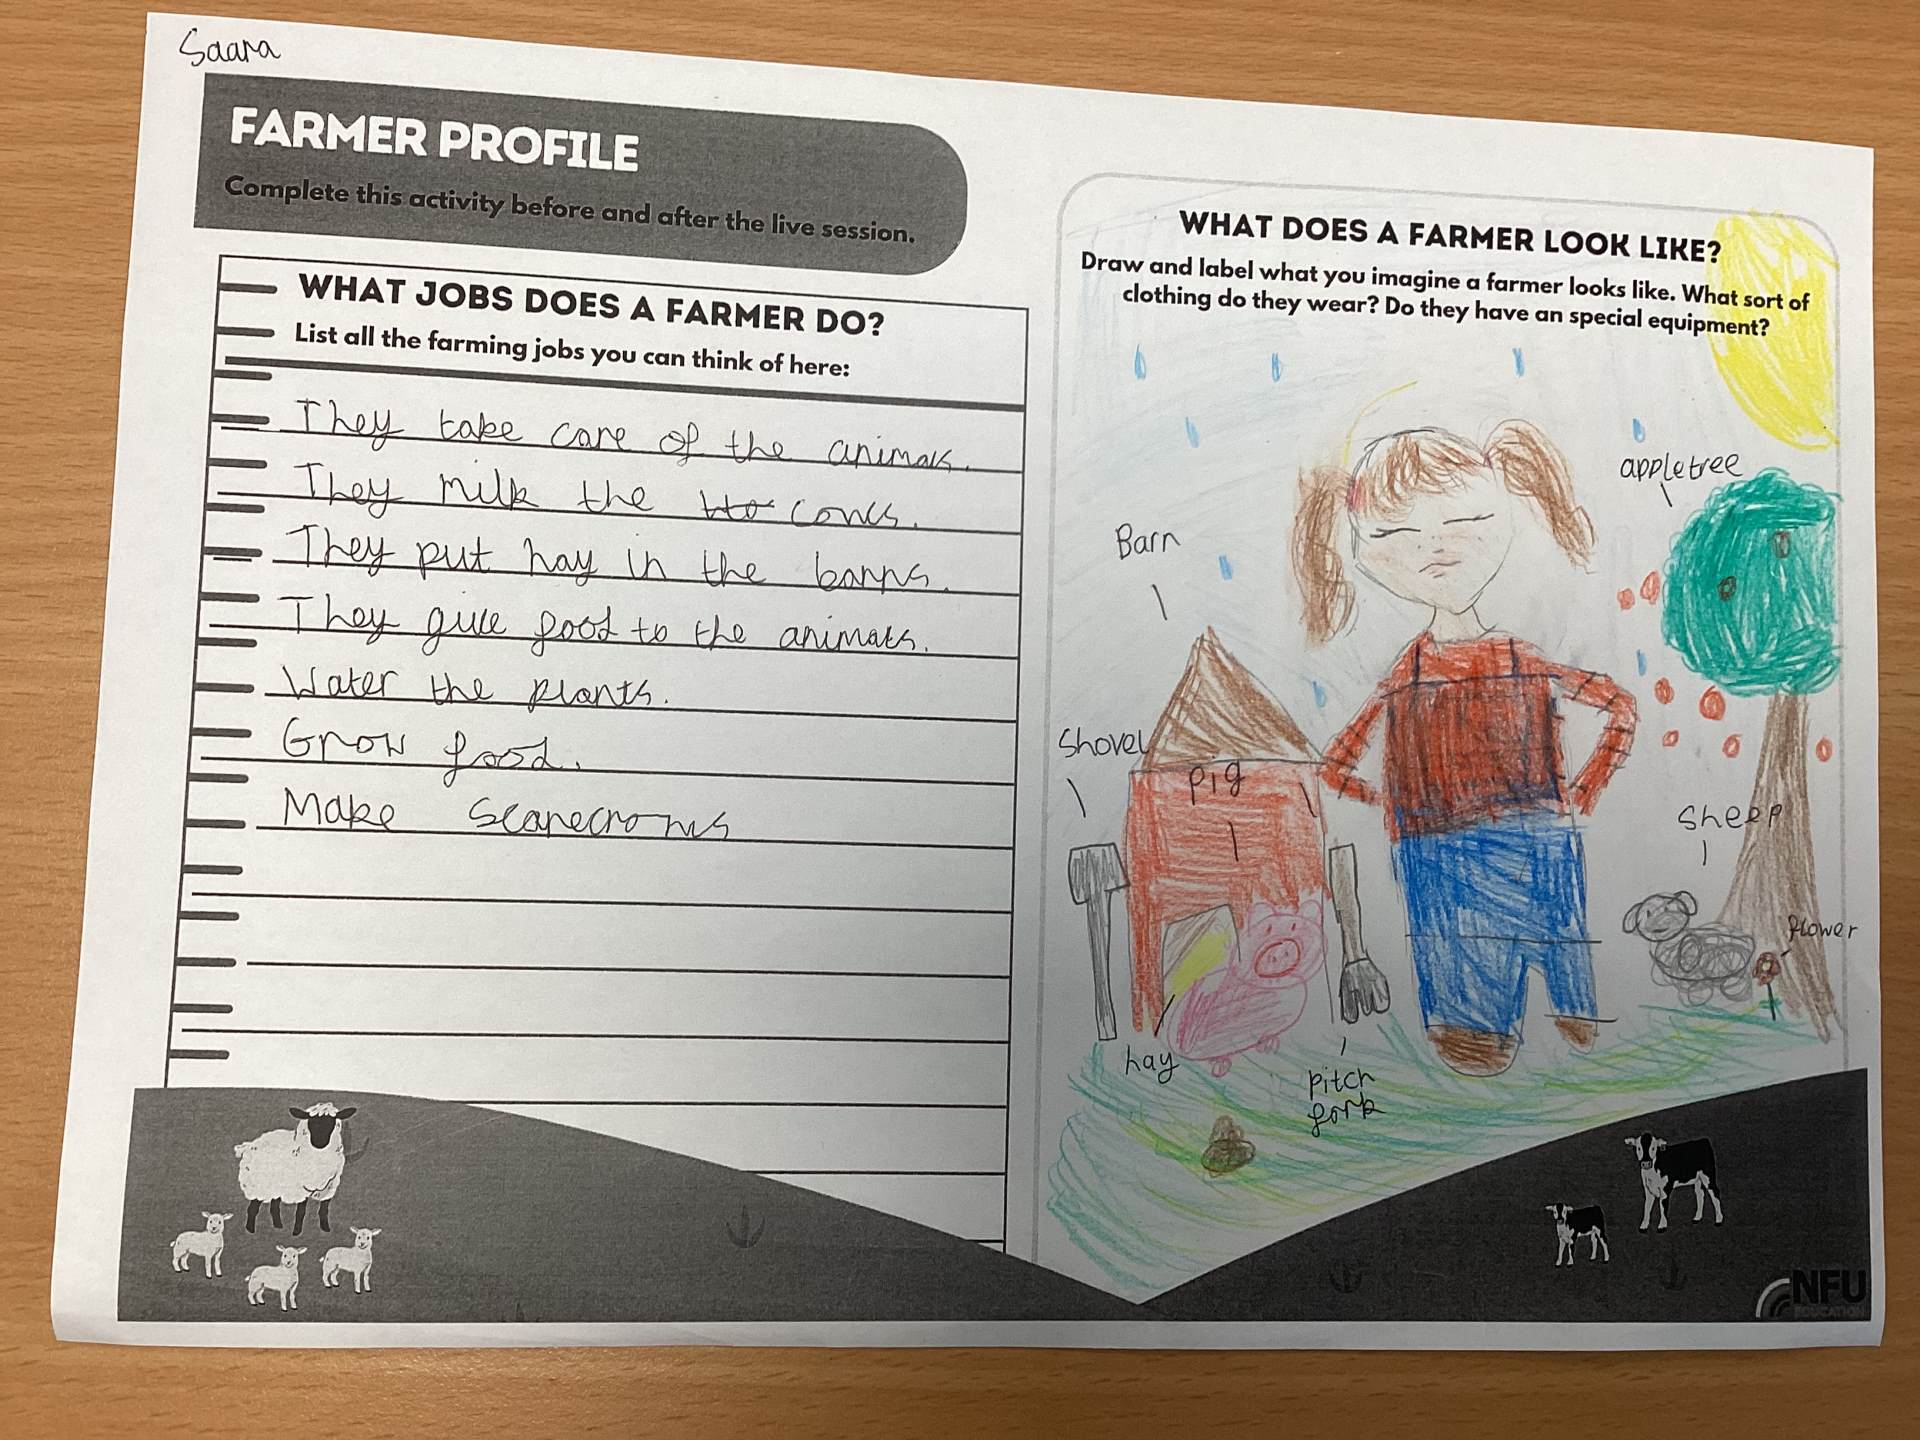 Saara
FARMER PROFILE
Complete this activity before and after the live session.
WHAT JOBS DOES A FARMER DO?
List all the farming jobs you can think of here:
They take care of the animals.
They milk the cows.
They put hay in the barns.
They give food to the animals.
Water the plants.
Grow food.
Make scarecrows
WHAT DOES A FARMER LOOK LIKE?
Draw and label what you imagine a farmer looks like. What sort of
clothing do they wear? Do they have an special equipment?
appletree
Barn
Shovel
pig
sheep
flower
hay
pitch
fork
NFU
EDUCATION